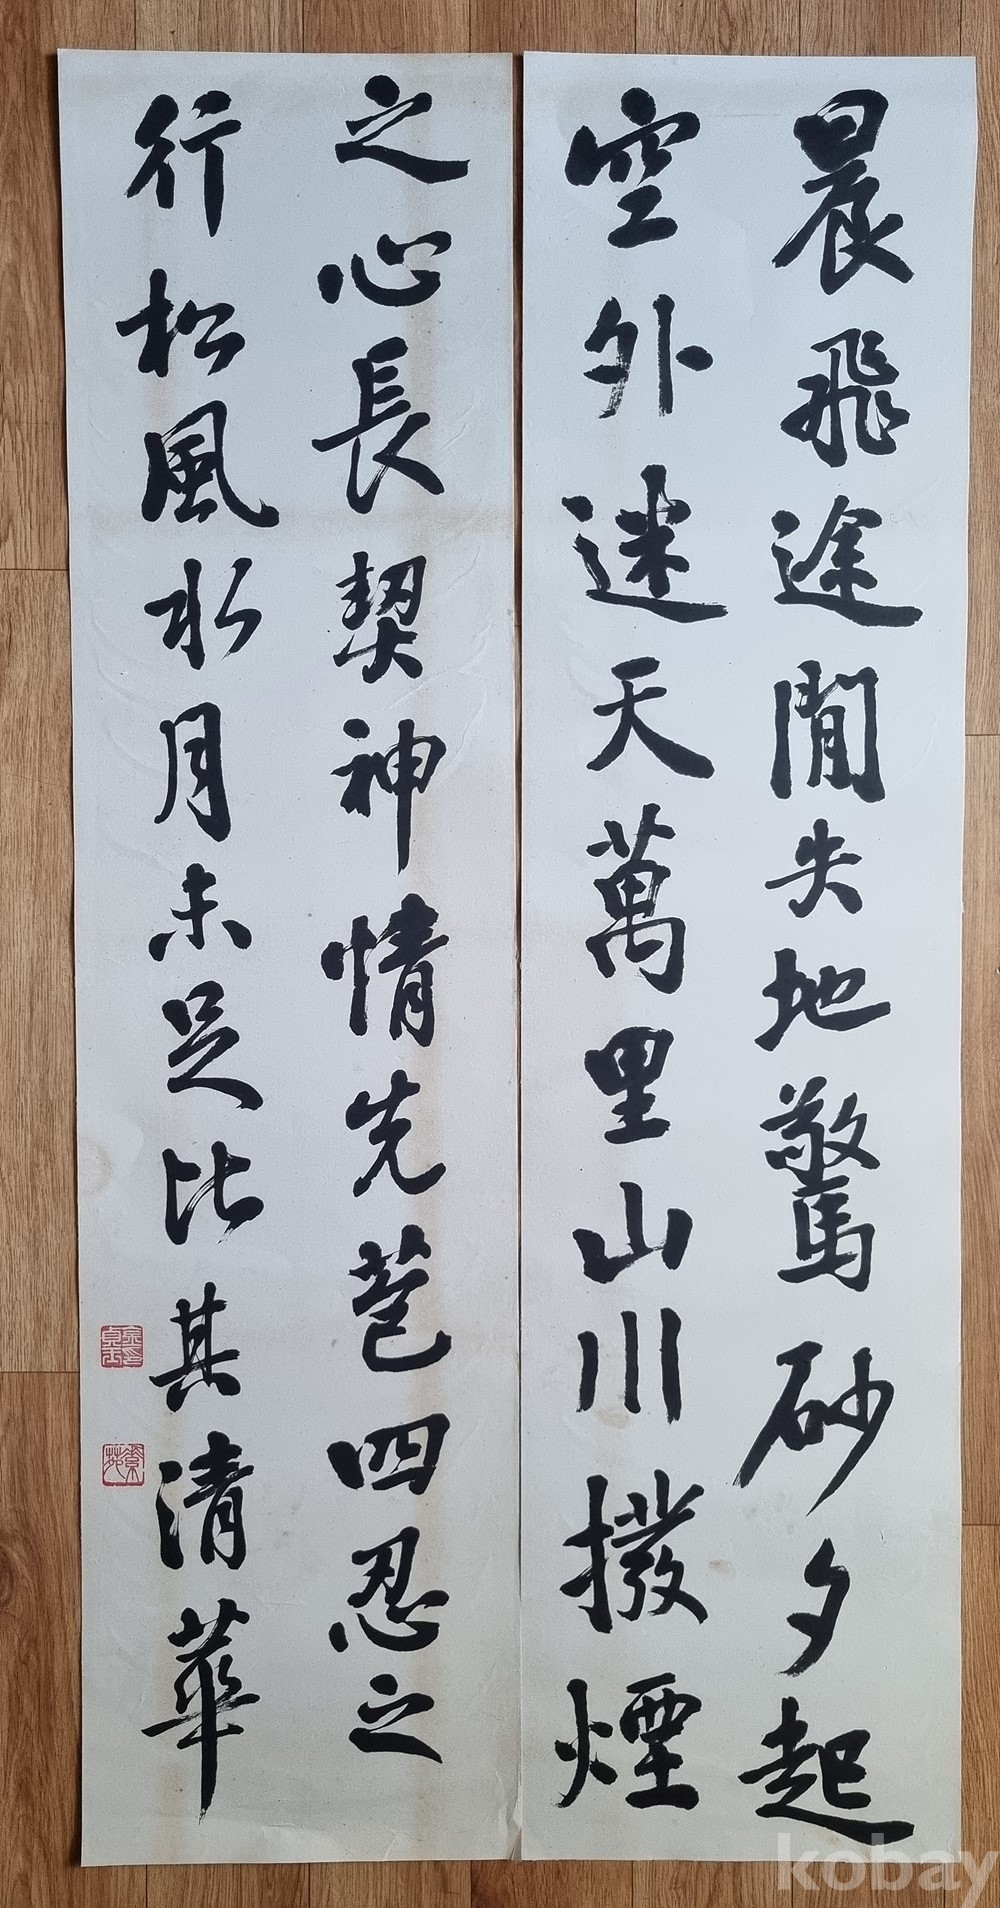 晨飛途閒失地驚砂夕起
空外迷天萬里山川撥煙
之心長契神情先苞四忍之
行松風水月未足比其清華
kobay